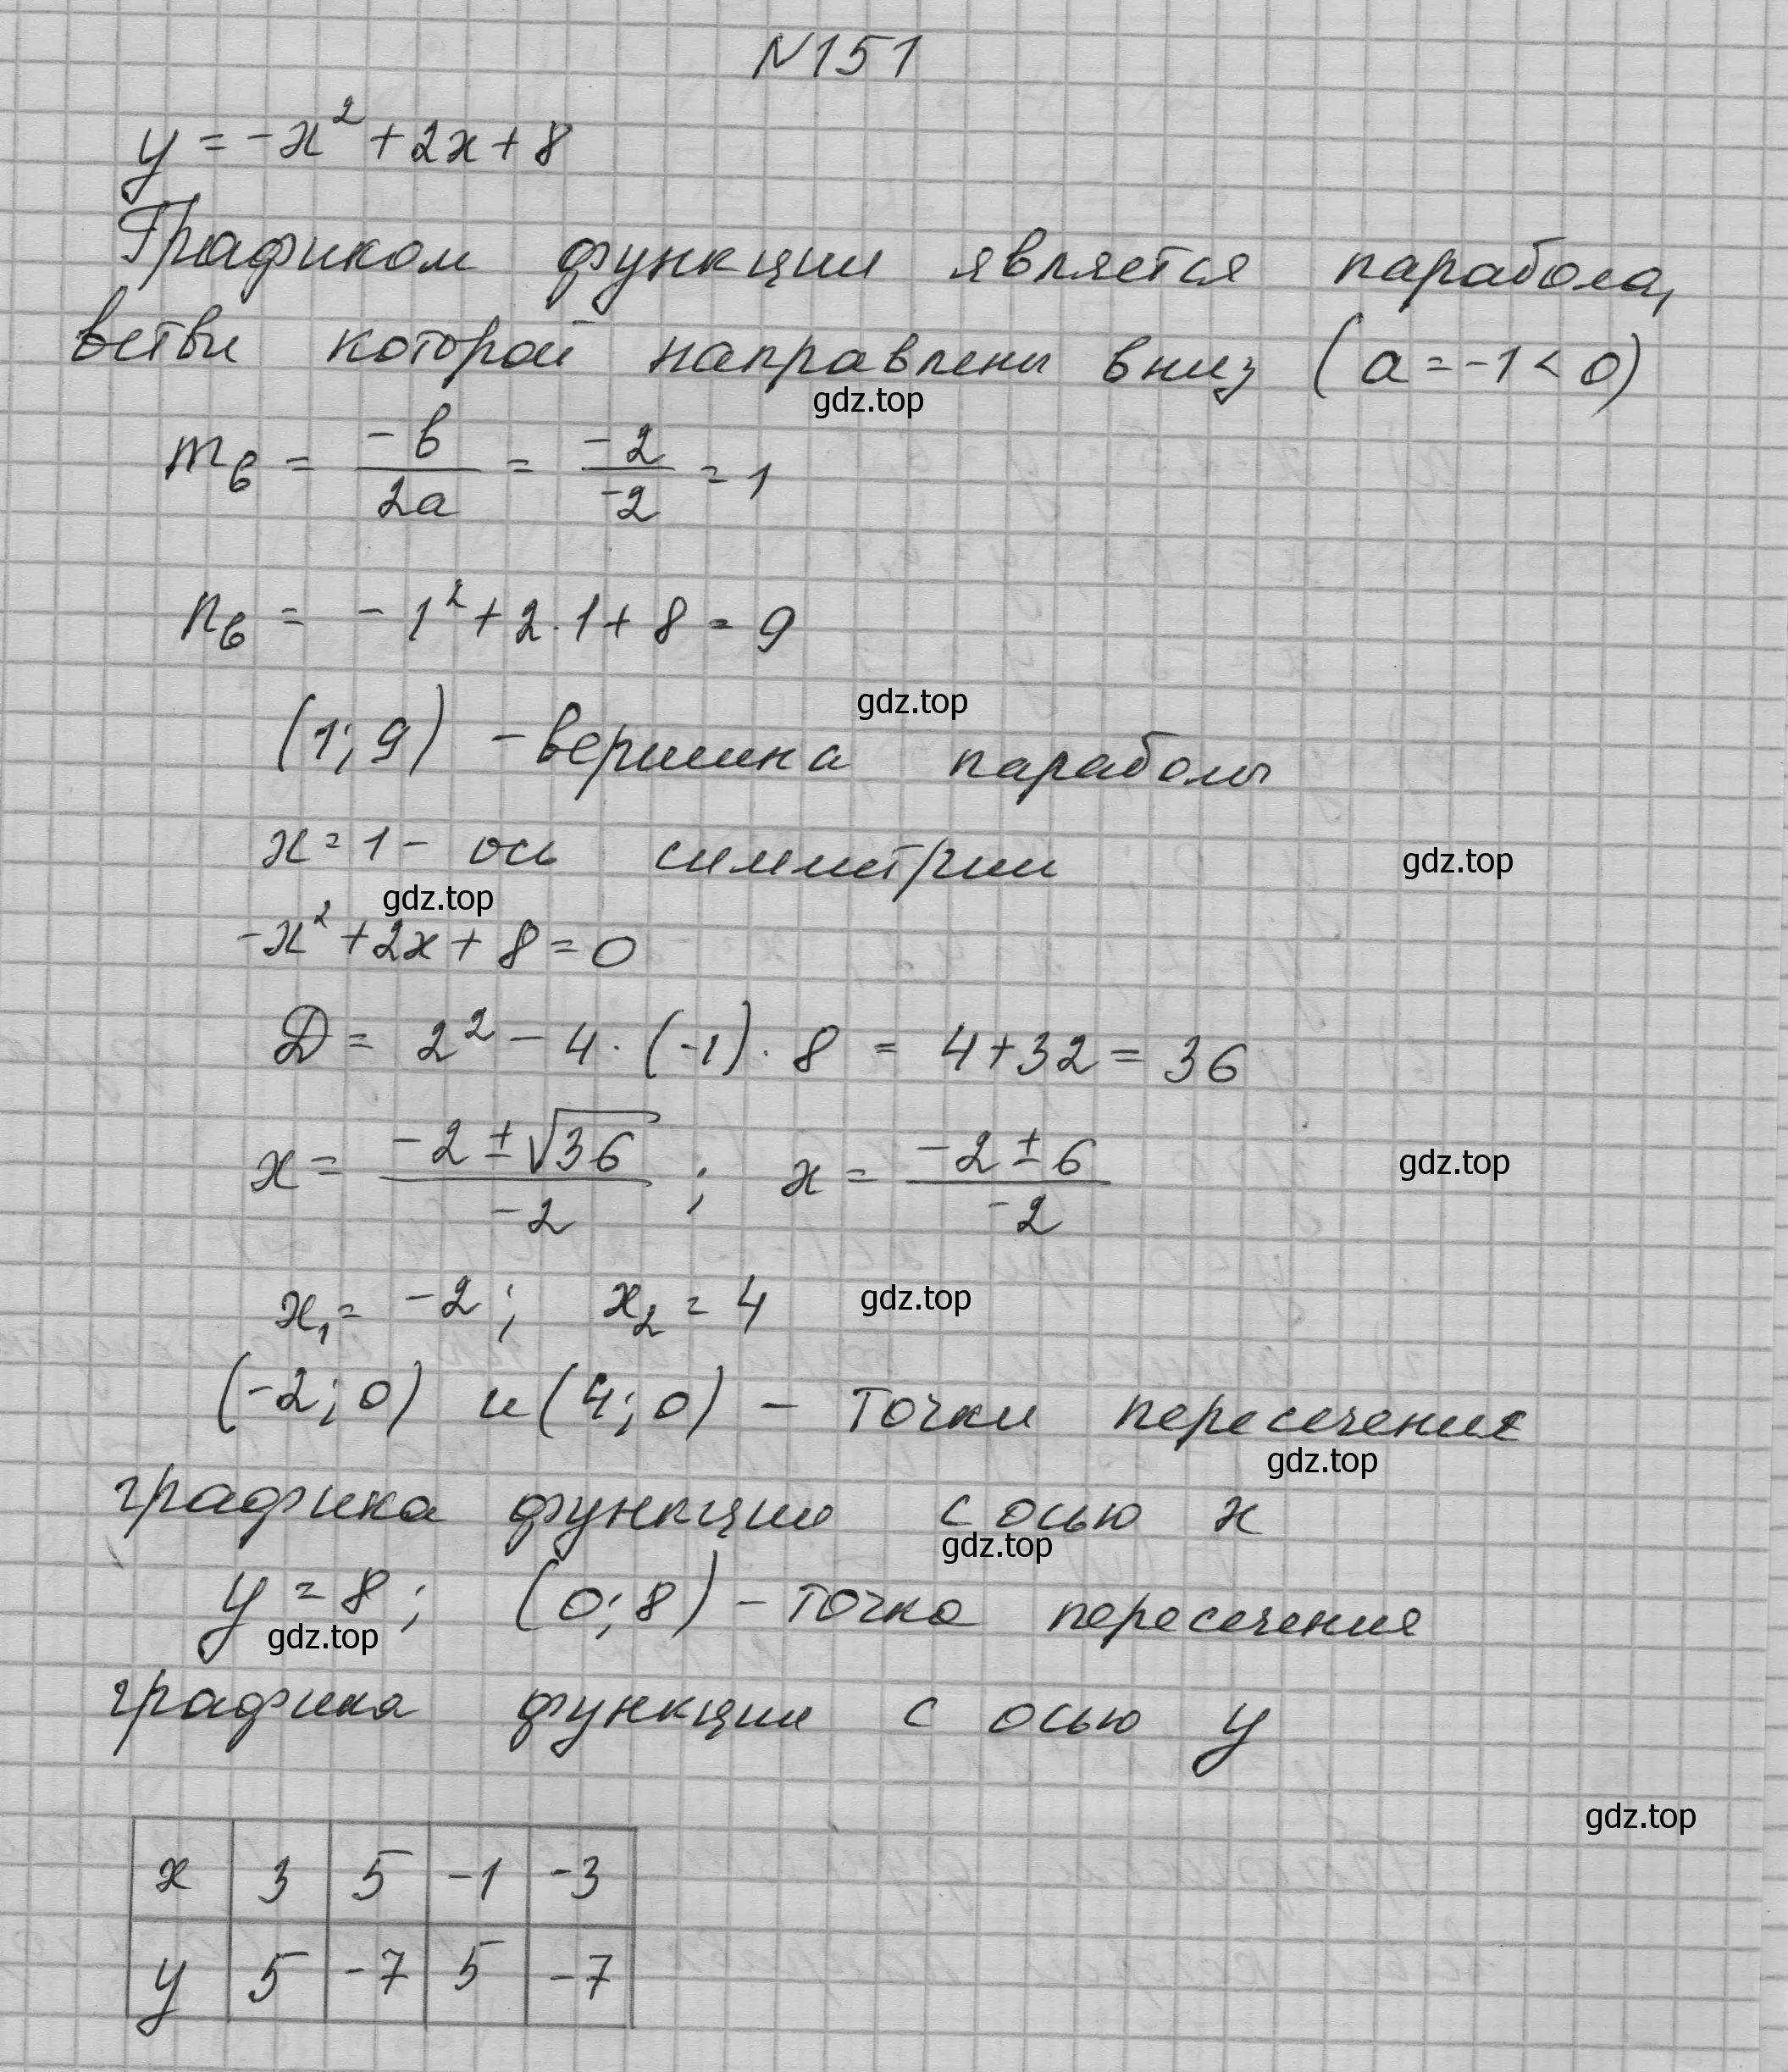 N151
y = -x² + 2x + 8
Графиком функции является парабола,
ветви которой направлены вниз (a = -1 < 0)
gdz.top
mв = -b/2a = -2/-2 = 1
nв = -1² + 2·1 + 8 = 9
gdz.top
(1; 9) - вершина параболы
x = 1 - ось симметрии
gdz.top
gdz.top
-x² + 2x + 8 = 0
D = 2² - 4·(-1)·8 = 4 + 32 = 36
x = (-2 ± √36)/-2 ; x = (-2 ± 6)/-2
gdz.top
x₁ = -2; x₂ = 4
gdz.top
(-2; 0) и (4; 0) - точки пересечения
gdz.top
графика функции с осью x
gdz.top
y = 8; (0; 8) - точка пересечения
gdz.top
графика функции с осью y
gdz.top
x 3 5 -1 -3
y 5 -7 5 -7